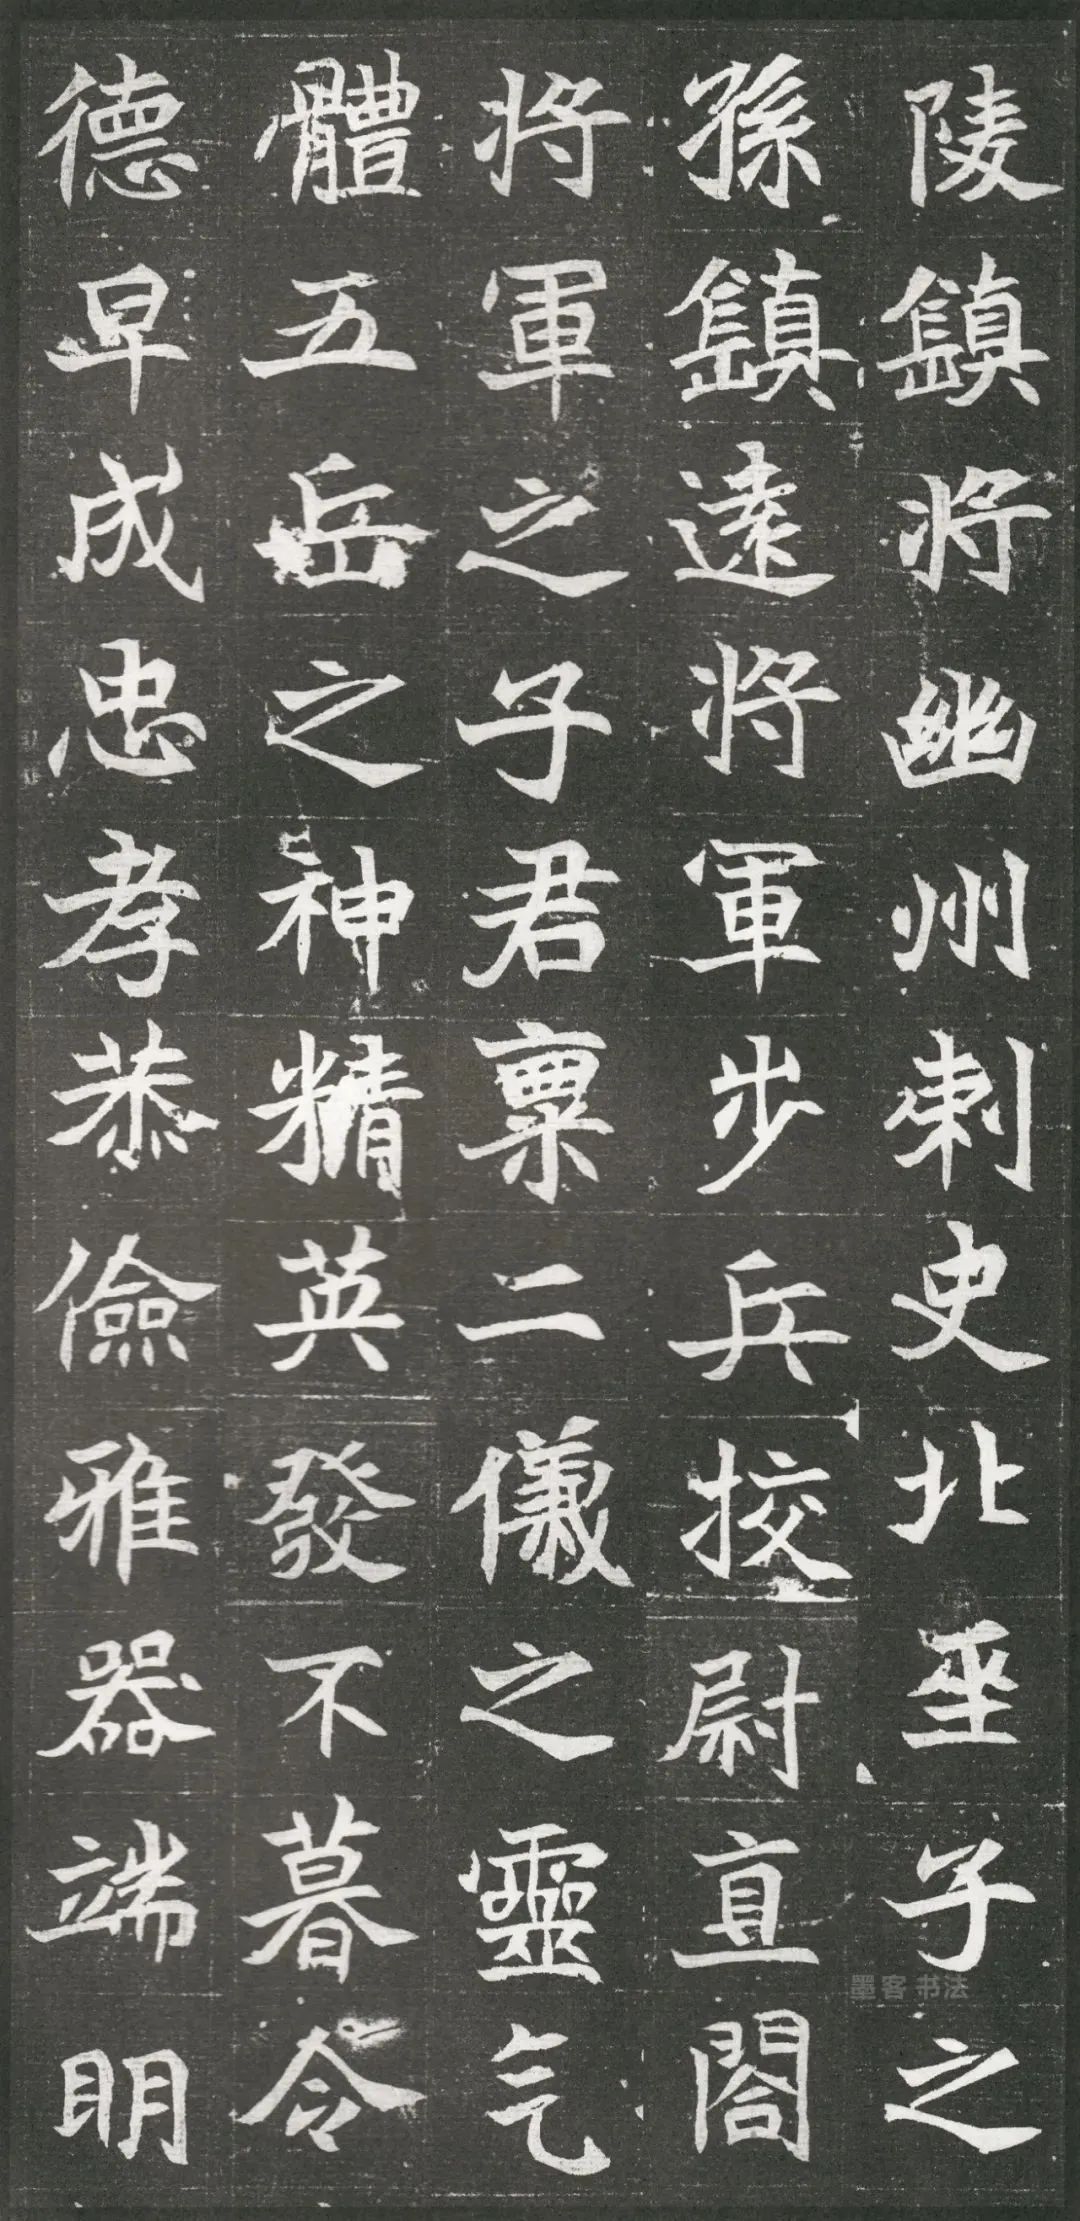 陵鎮將幽州刺史北平子之
孫鎮遠將軍步兵挍尉直閤
將軍之子君稟二儀之靈气
體五岳之神精英發不暮令
德早成忠孝恭儉雅器端明
墨客书法